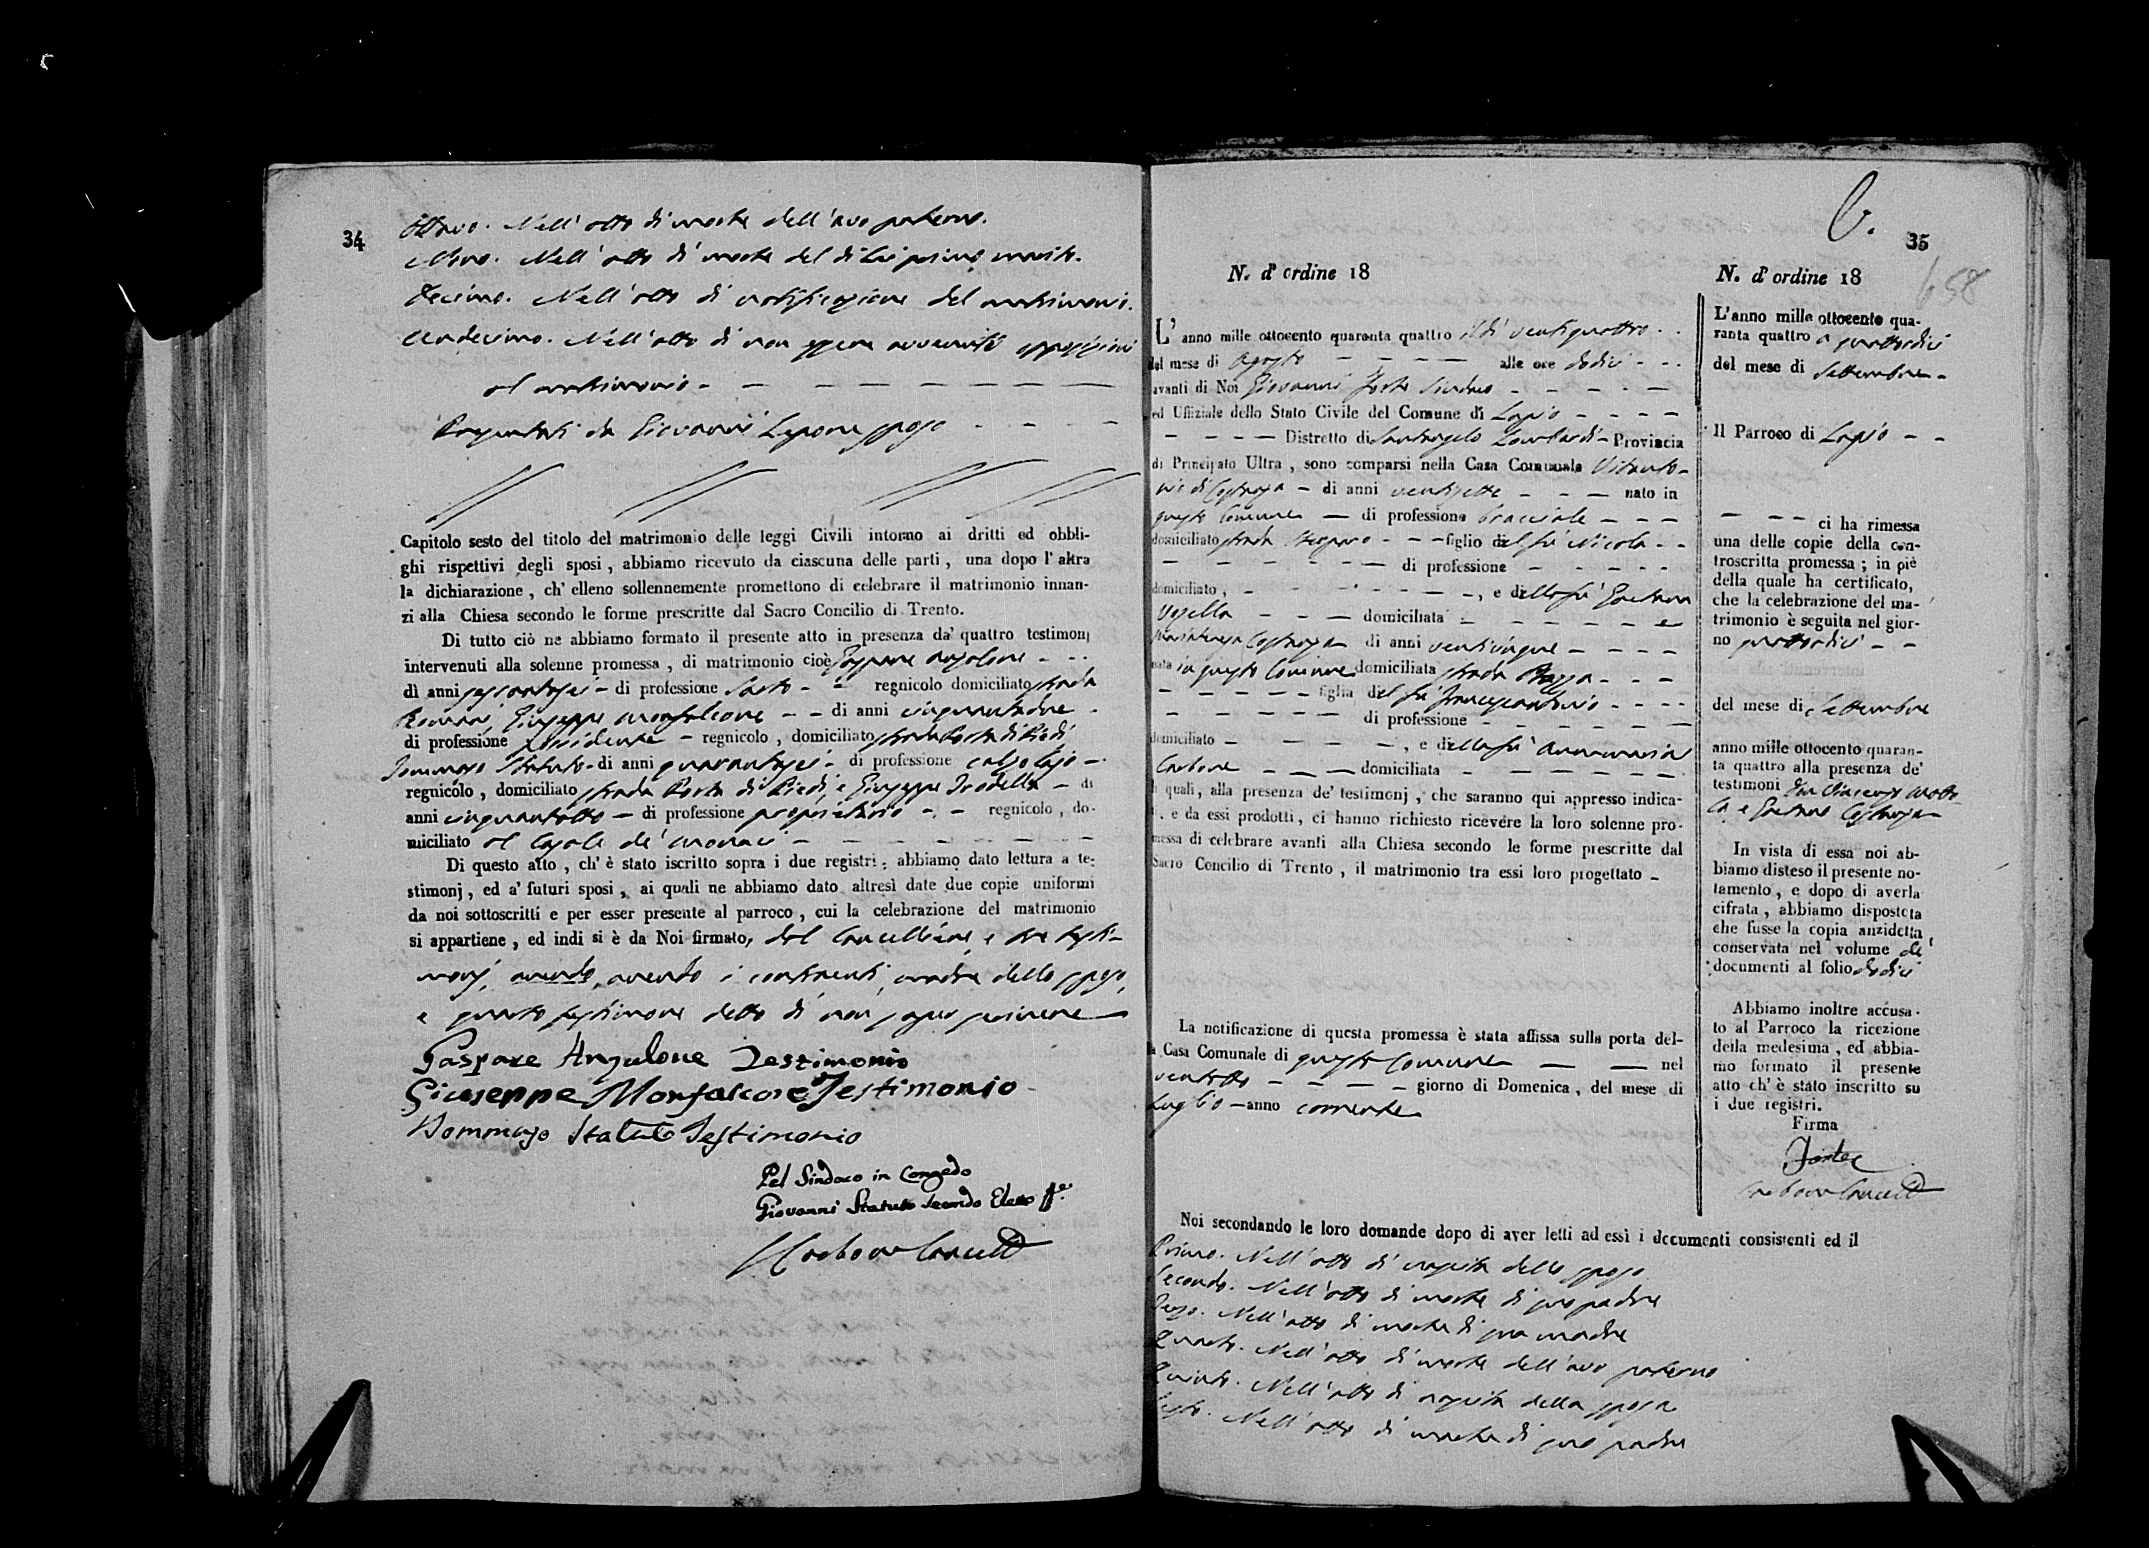 34
Ottavo. Nell'atto di morte dell'avo paterno.
Nono. Nell'atto di morte del di lei primo marito.
Decimo. Nell'atto di notificazione del matrimonio.
Undecimo. Nell'atto di non essere avvenute opposizioni
al matrimonio - - - - - - - -
Presentati da Giovanni Lepore sposo - - - -
Capitolo sesto del titolo del matrimonio delle leggi Civili intorno ai dritti ed obbli-
ghi rispettivi degli sposi, abbiamo ricevuto da ciascuna delle parti, una dopo l'altra
la dichiarazione, ch'elleno sollennemente promettono di celebrare il matrimonio innan-
zi alla Chiesa secondo le forme prescritte dal Sacro Concilio di Trento.
Di tutto ciò ne abbiamo formato il presente atto in presenza da' quattro testimonj
intervenuti alla solenne promessa, di matrimonio cioè Gaspare Angolone - - -
di anni sessantasei - di professione Sarto - - regnicolo domiciliato strada
Romani, Giuseppe Monfalcone - - di anni cinquantadue -
di professione possidente - regnicolo, domiciliato strada Porta di Piedi
Tommaso Statuto - di anni quarantasei - di professione calzolajo -
regnicolo, domiciliato strada Porta di Piedi, e Giuseppe Trodella - di
anni cinquantotto - di professione proprietario - - regnicolo, do-
miciliato al Casale de' Monaci - - - - - -
Di questo atto, ch'è stato iscritto sopra i due registri; abbiamo dato lettura a te-
stimonj, ed a' futuri sposi, ai quali ne abbiamo dato altresì date due copie uniformi
da noi sottoscritti e per esser presente al parroco, cui la celebrazione del matrimonio
si appartiene, ed indi si è da Noi firmato, dal Cancelliere, e tre testi-
monj, avendo avendo i contraenti, madre dello sposo,
e quarto testimone detto di non saper scrivere
Gaspare Angulone Testimonio
Giuseppe Monfalcone Testimonio
Tommaso Statuto Testimonio
Pel Sindaco in Congedo
Giovanni Statuto Secondo Eletto ff.
Carbone Cancell.
35
658
N. d'ordine 18
L'anno mille ottocento quaranta quattro il dì ventiquattro - -
del mese di Agosto - - - - alle ore dodici - - -
avanti di Noi Giovanni Forte Sindaco - - - - -
ed Uffiziale dello Stato Civile del Comune di Lapio - - - -
- - - - Distretto di Santangelo Lombardi - Provincia
di Principato Ultra, sono comparsi nella Casa Comunale Vitanto-
nio di Castroja - di anni ventisette - - - nato in
questo Comune - di professione bracciale - - -
domiciliato strada - - - figlio del fu Nicola - -
- - - - - - di professione - - - - -
domiciliato, - - - - - - -, e della fu Gaetana
- - - domiciliata - - - - - - e
di anni venticinque - - - -
nata in questo Comune domiciliata strada Piazza - - -
- - - - - figlia del fu Francescantonio - - - -
- - - - - - di professione - - - - - -
domiciliato - - - - -, e della fu Annamaria
Carbone - - - domiciliata - - - - - -
i quali, alla presenza de' testimonj, che saranno qui appresso indica-
ti, e da essi prodotti, ci hanno richiesto ricevere la loro solenne pro-
messa di celebrare avanti alla Chiesa secondo le forme prescritte dal
Sacro Concilio di Trento, il matrimonio tra essi loro progettato -
La notificazione di questa promessa è stata affissa sulla porta del-
la Casa Comunale di questo Comune - - nel
ventotto - - - - giorno di Domenica, del mese di
Luglio - anno corrente
Noi secondando le loro domande dopo di aver letti ad essi i documenti consistenti ed il
Primo. Nell'atto di nascita dello sposo
Secondo. Nell'atto di morte di suo padre
Terzo. Nell'atto di morte di sua madre
Quarto. Nell'atto di morte dell'avo paterno
Quinto. Nell'atto di nascita della sposa
Sesto. Nell'atto di morte di suo padre
N. d'ordine 18
L'anno mille ottocento qua-
ranta quattro a quattordici
del mese di Settembre -
Il Parroco di Lapio - -
- - - ci ha rimessa
una delle copie della con-
troscritta promessa; in piè
della quale ha certificato,
che la celebrazione del ma-
trimonio è seguita nel gior-
no quattordici - -
del mese di Settembre
anno mille ottocento quaran-
ta quattro alla presenza de'
testimoni
e Gaetano
In vista di essa noi ab-
biamo disteso il presente no-
tamento, e dopo di averla
cifrata, abbiamo disposteta
che fusse la copia anzidetta
conservata nel volume de'
documenti al folio dodici
Abbiamo inoltre accusa-
to al Parroco la ricezione
della medesima, ed abbia-
mo formato il presente
atto ch'è stato inscritto su
i due registri.
Firma
Forte
Carbone Cancell.